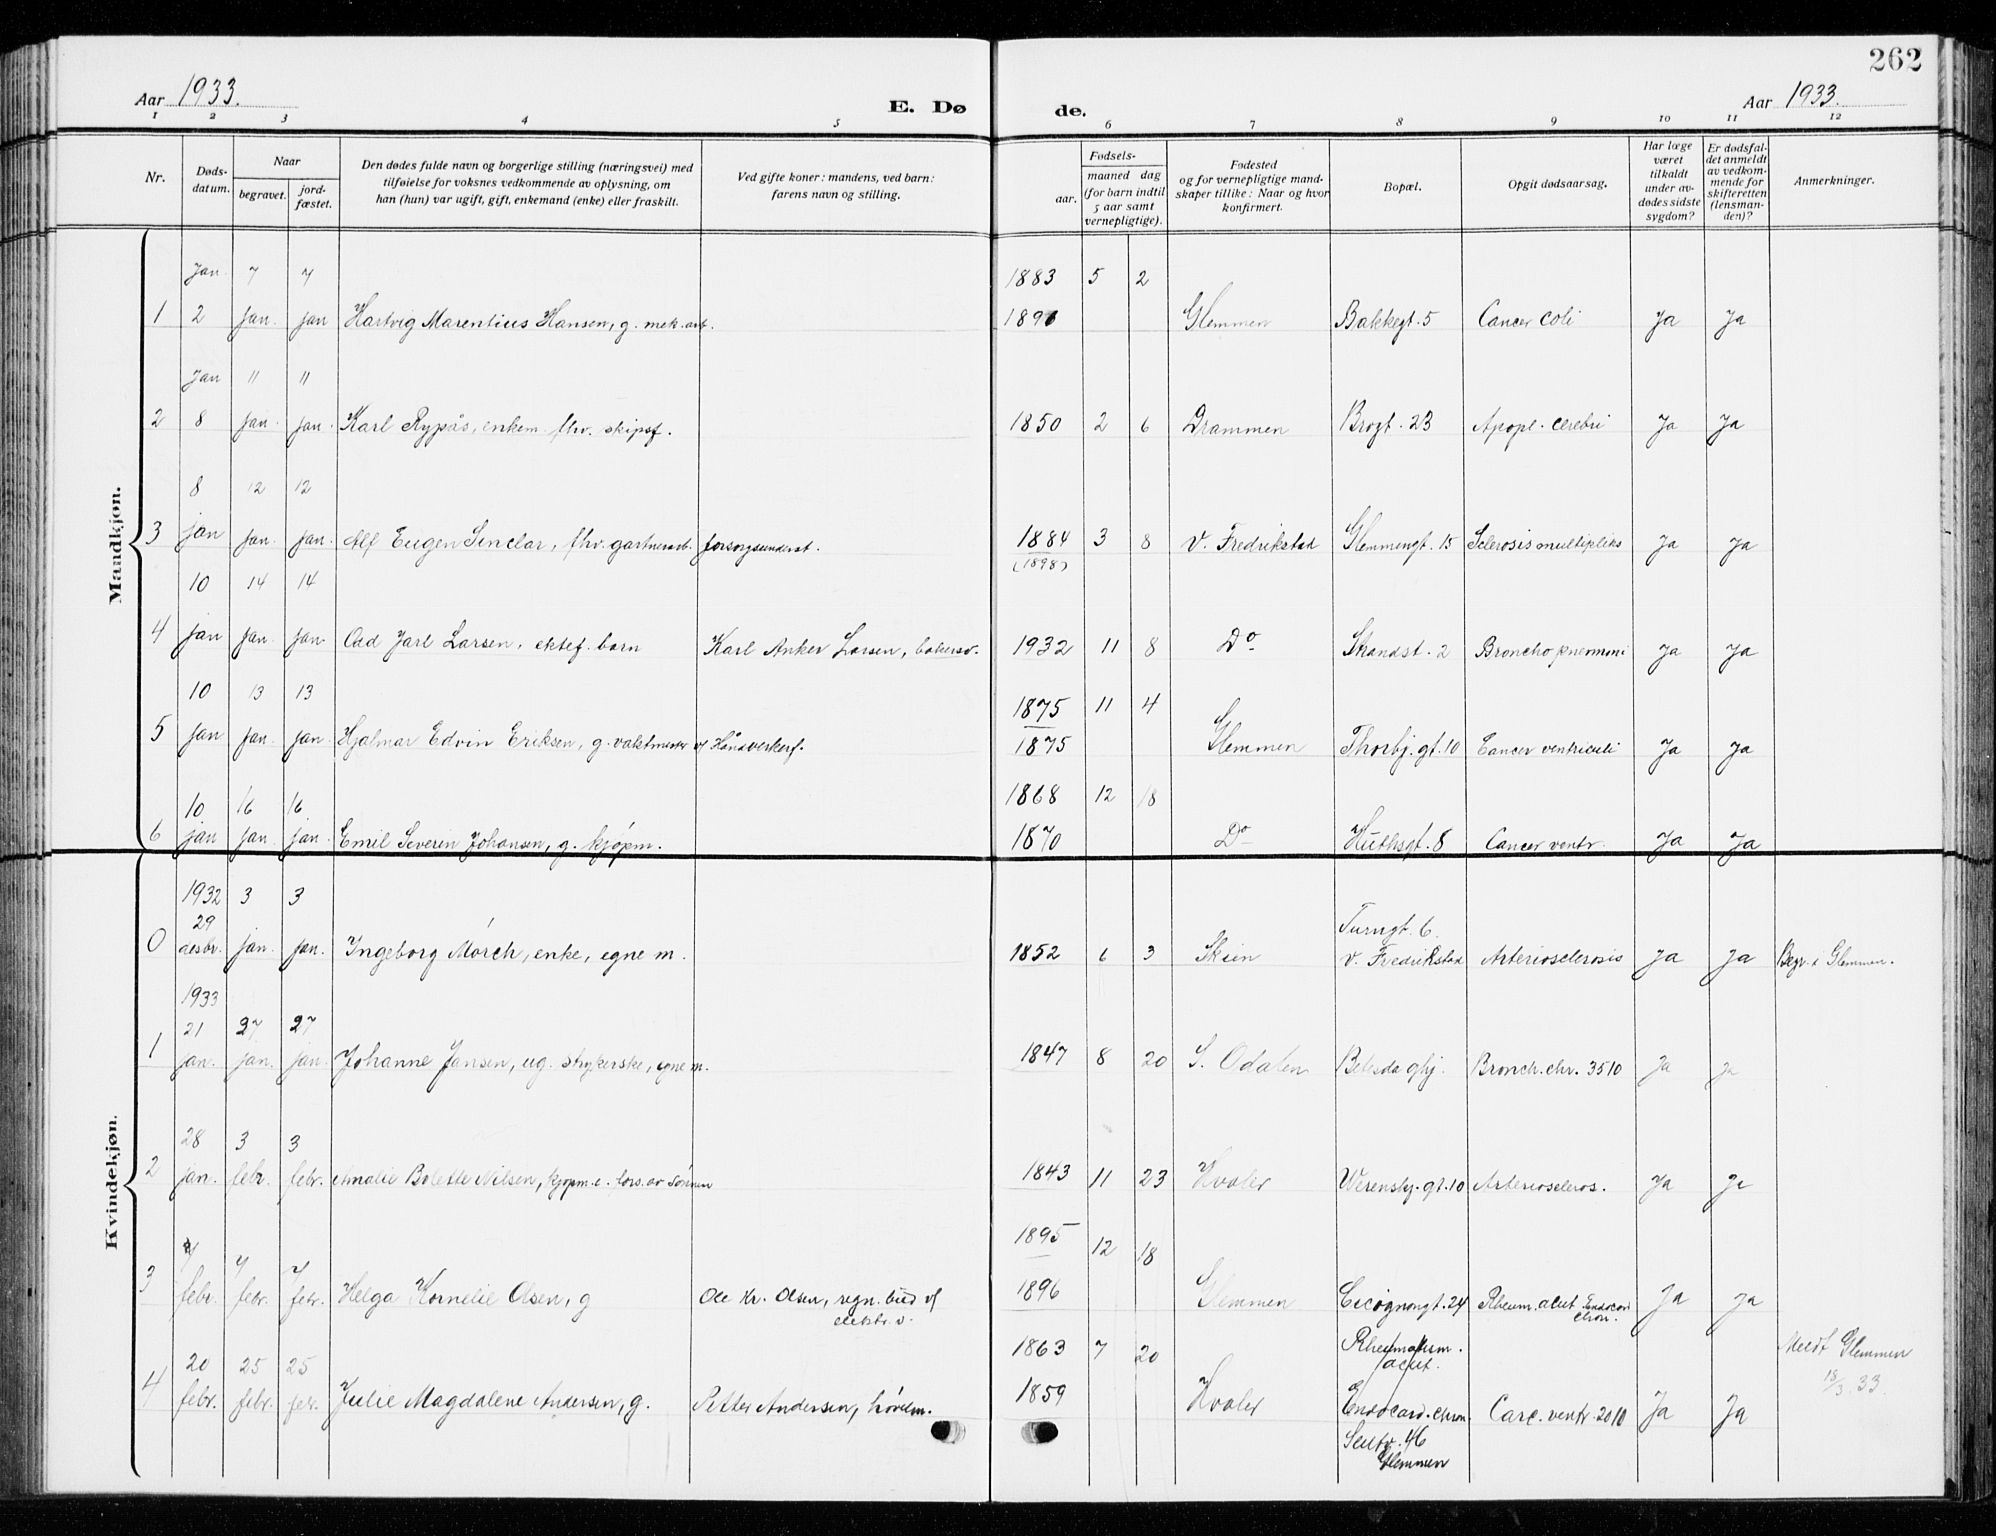 262
Aar 1933.
E. Dø de.
Aar 1933.
1 2 3 4 5 6 7 8 9 10 11 12
Nr.
Døds-
datum.
Naar
begravet.
jord-
fæstet.
Den dødes fulde navn og borgerlige stilling (næringsvei) med
tilføielse for voksnes vedkommende av oplysning, om
han (hun) var ugift, gift, enkemand (enke) eller fraskilt.
Ved gifte koner: mandens, ved barn:
farens navn og stilling.
Fødsels-
aar.
maaned dag
(for barn indtil
5 aar samt
vernepligtige).
Fødested
og for vernepligtige mand-
skaper tillike: Naar og hvor
konfirmert.
Bopæl.
Opgit dødsaarsag.
Har læge
været
tilkaldt
under av-
dødes sidste
sygdom?
Er dødsfal-
det anmeldt
av vedkom-
mende for
skifteretten
(lensman-
den)?
Anmerkninger.
Mandkjøn.
Jan 7 7 1883 5 2
1 2 jan. jan Hartvig Marentius Hansen, g. mek. arb. 1890 Glemmen Bakkegt. 5 Cancer coli Ja Ja
Jan 11 11
2 8 jan. jan. Karl Rypås, enkem. fhv. skipsf. 1850 2 6 Drammen Brogt. 23 Apopl. cerebri Ja Ja
8 12 12
3 jan jan. jan. Alf Eugen Sinclar, fhv. gartnerarb. forsorgsunderst. 1884 3 8 V. Fredrikstad Glemmengt. 15 Sclerosis multipliks Ja Ja
(1898)
10 14 14
4 jan jan. jan. Odd Jarl Larsen, ektef. barn Karl Anker Larsen, bakersv. 1932 11 8 Do Skandst. 2 Bronchopneumoni Ja Ja
10 13 13 1875 11 4
5 jan jan. jan. Hjalmar Edvin Eriksen, g. vaktmester v/ Håndverkerf. 1875 Glemmen Thorbj. gt. 10 Cancer ventriculi Ja Ja
10 16 16 1868 12 18
6 jan jan. jan. Emil Severin Johansen, g. kjøpm. 1870 Do Huthsgt. 8 Cancer ventr. Ja Ja
Kvindekjøn.
1932 3 3
29 Turngt. 6.
0 desbr. jan. jan. Ingeborg Mörch, enke, egne m. 1852 6 3 Skien V. Fredrikstad Arteriosclerosis Ja Ja Begr. i Glemmen.
1933
21 27 27
1 jan. jan. jan. Johanne Jansen, ug. strykerske, egne m. 1847 8 20 S. Odalen Betesda ghj. Bronch. chr. 3510 Ja Ja
28 3 3
2 jan. febr. febr. Amalie Bolette Nilsen, kjøpm. e. fors. av sønnen 1843 11 23 Hvaler Werenskj. gt. 10 Arterioscleros. Ja Ja
1895 12 18
7 7 7
3 febr. febr. febr. Helga Kornelie Olsen, g Ole Kr. Olsen, regn. bud v/ 1896 Glemmen Cicignongt. 24 Rheum. acut Endocar Ja Ja
elektr. v. chron.
20 25 25 1863 7 20 Rheumatism. acut. Meldt Glemmen
18/3. 33.
4 febr. febr. febr. Julie Magdalene Andersen, g. Petter Andersen, hövlem. 1859 Hvaler Endocard. chron. Carc. ventr. 2010 Ja Ja
46
Glemmen